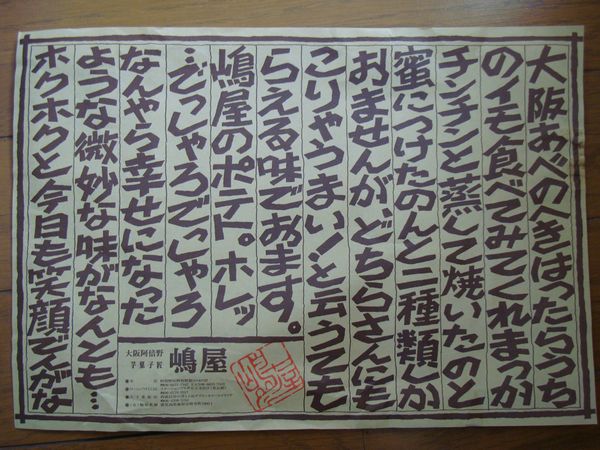 大阪あべのへきはったらうち
のイモ食べてみてくれまっか
チンチンと蒸して焼いたのと
蜜につけたのんと二種類しか
おませんが、どちらさんにも
こりゃうまい!と云うても
らえる味でおます。
嶋屋のポテト。ホレッ
…でっしゃろでっしゃろ
なんやら幸せになった
ような微妙な味がなんとも…
ホクホクと今日も笑顔でんがな
大阪阿倍野
芋菓子匠
嶋屋